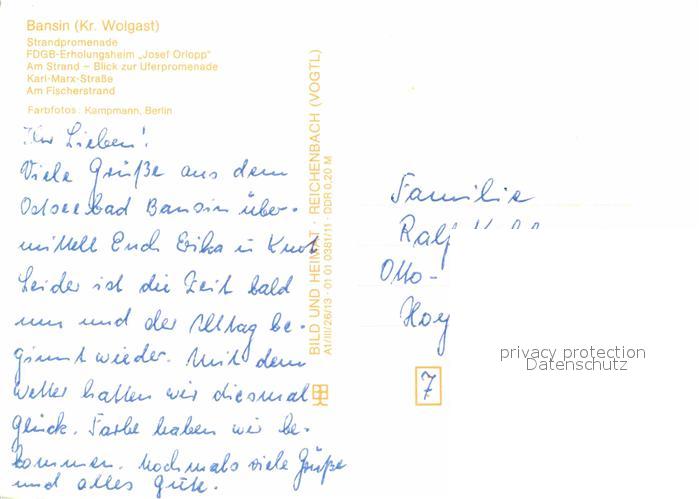 Bansin (Kr. Wolgast)
Strandpromenade
FDGB-Erholungsheim „Josef Orlopp"
Am Strand – Blick zur Uferpromenade
Karl-Marx-Straße
Am Fischerstrand
Farbfotos: Kampmann, Berlin
Ihr Lieben!
Viele Grüße aus dem
Ostseebad Bansin über-
mittelt Euch Erika u Knut
Leider ist die Zeit bald
um und der Alltag be-
ginnt wieder. Mit dem
Wetter hatten wir diesmal
Glück. Farbe haben wir be-
kommen. Nochmals viele Grüße
und alles Gute.
BILD UND HEIMAT · REICHENBACH (VOGTL)
A1/III/26/13 · 01 01 0381/11 · DDR 0,20 M
Familie
Ralf
Otto-
Hoy
7
privacy protection
Datenschutz